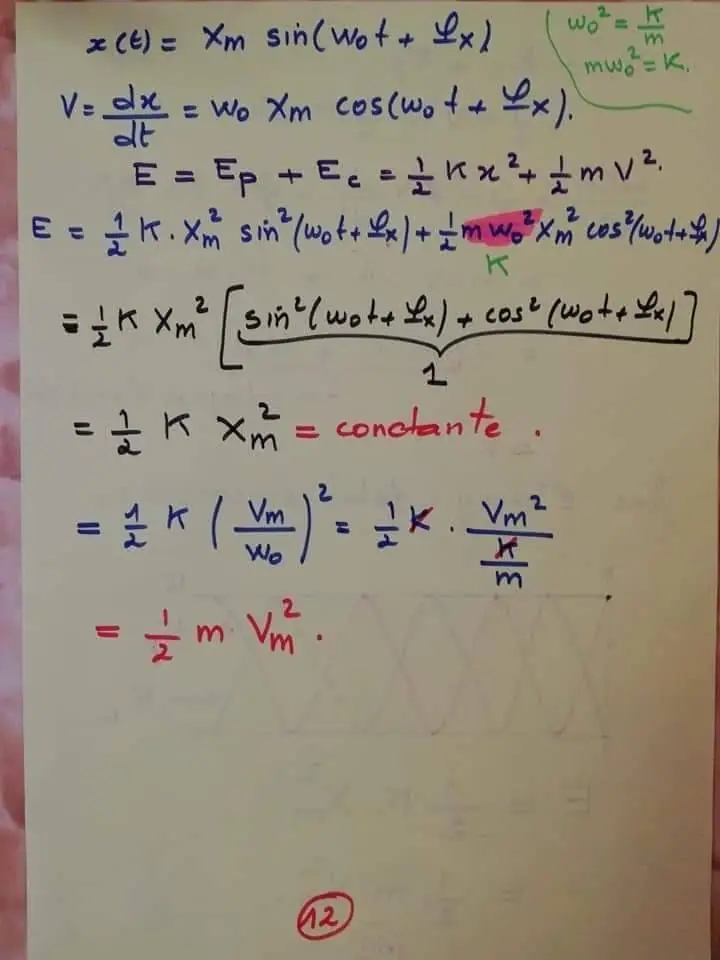 x(t) = Xm sin(ω0t + φx)
ω0² = K/m
mω0² = K.
V = dx/dt = ω0 Xm cos(ω0t + φx).
E = Ep + Ec = 1/2 K x² + 1/2 m V².
E = 1/2 K . Xm² sin²(ω0t + φx) + 1/2 m ω0² Xm² cos²(ω0t + φx)
K
= 1/2 K Xm² [sin²(ω0t + φx) + cos²(ω0t + φx)]
1
= 1/2 K Xm² = constante .
= 1/2 K (Vm/ω0)² = 1/2 K . Vm²/(K/m)
= 1/2 m Vm² .
12